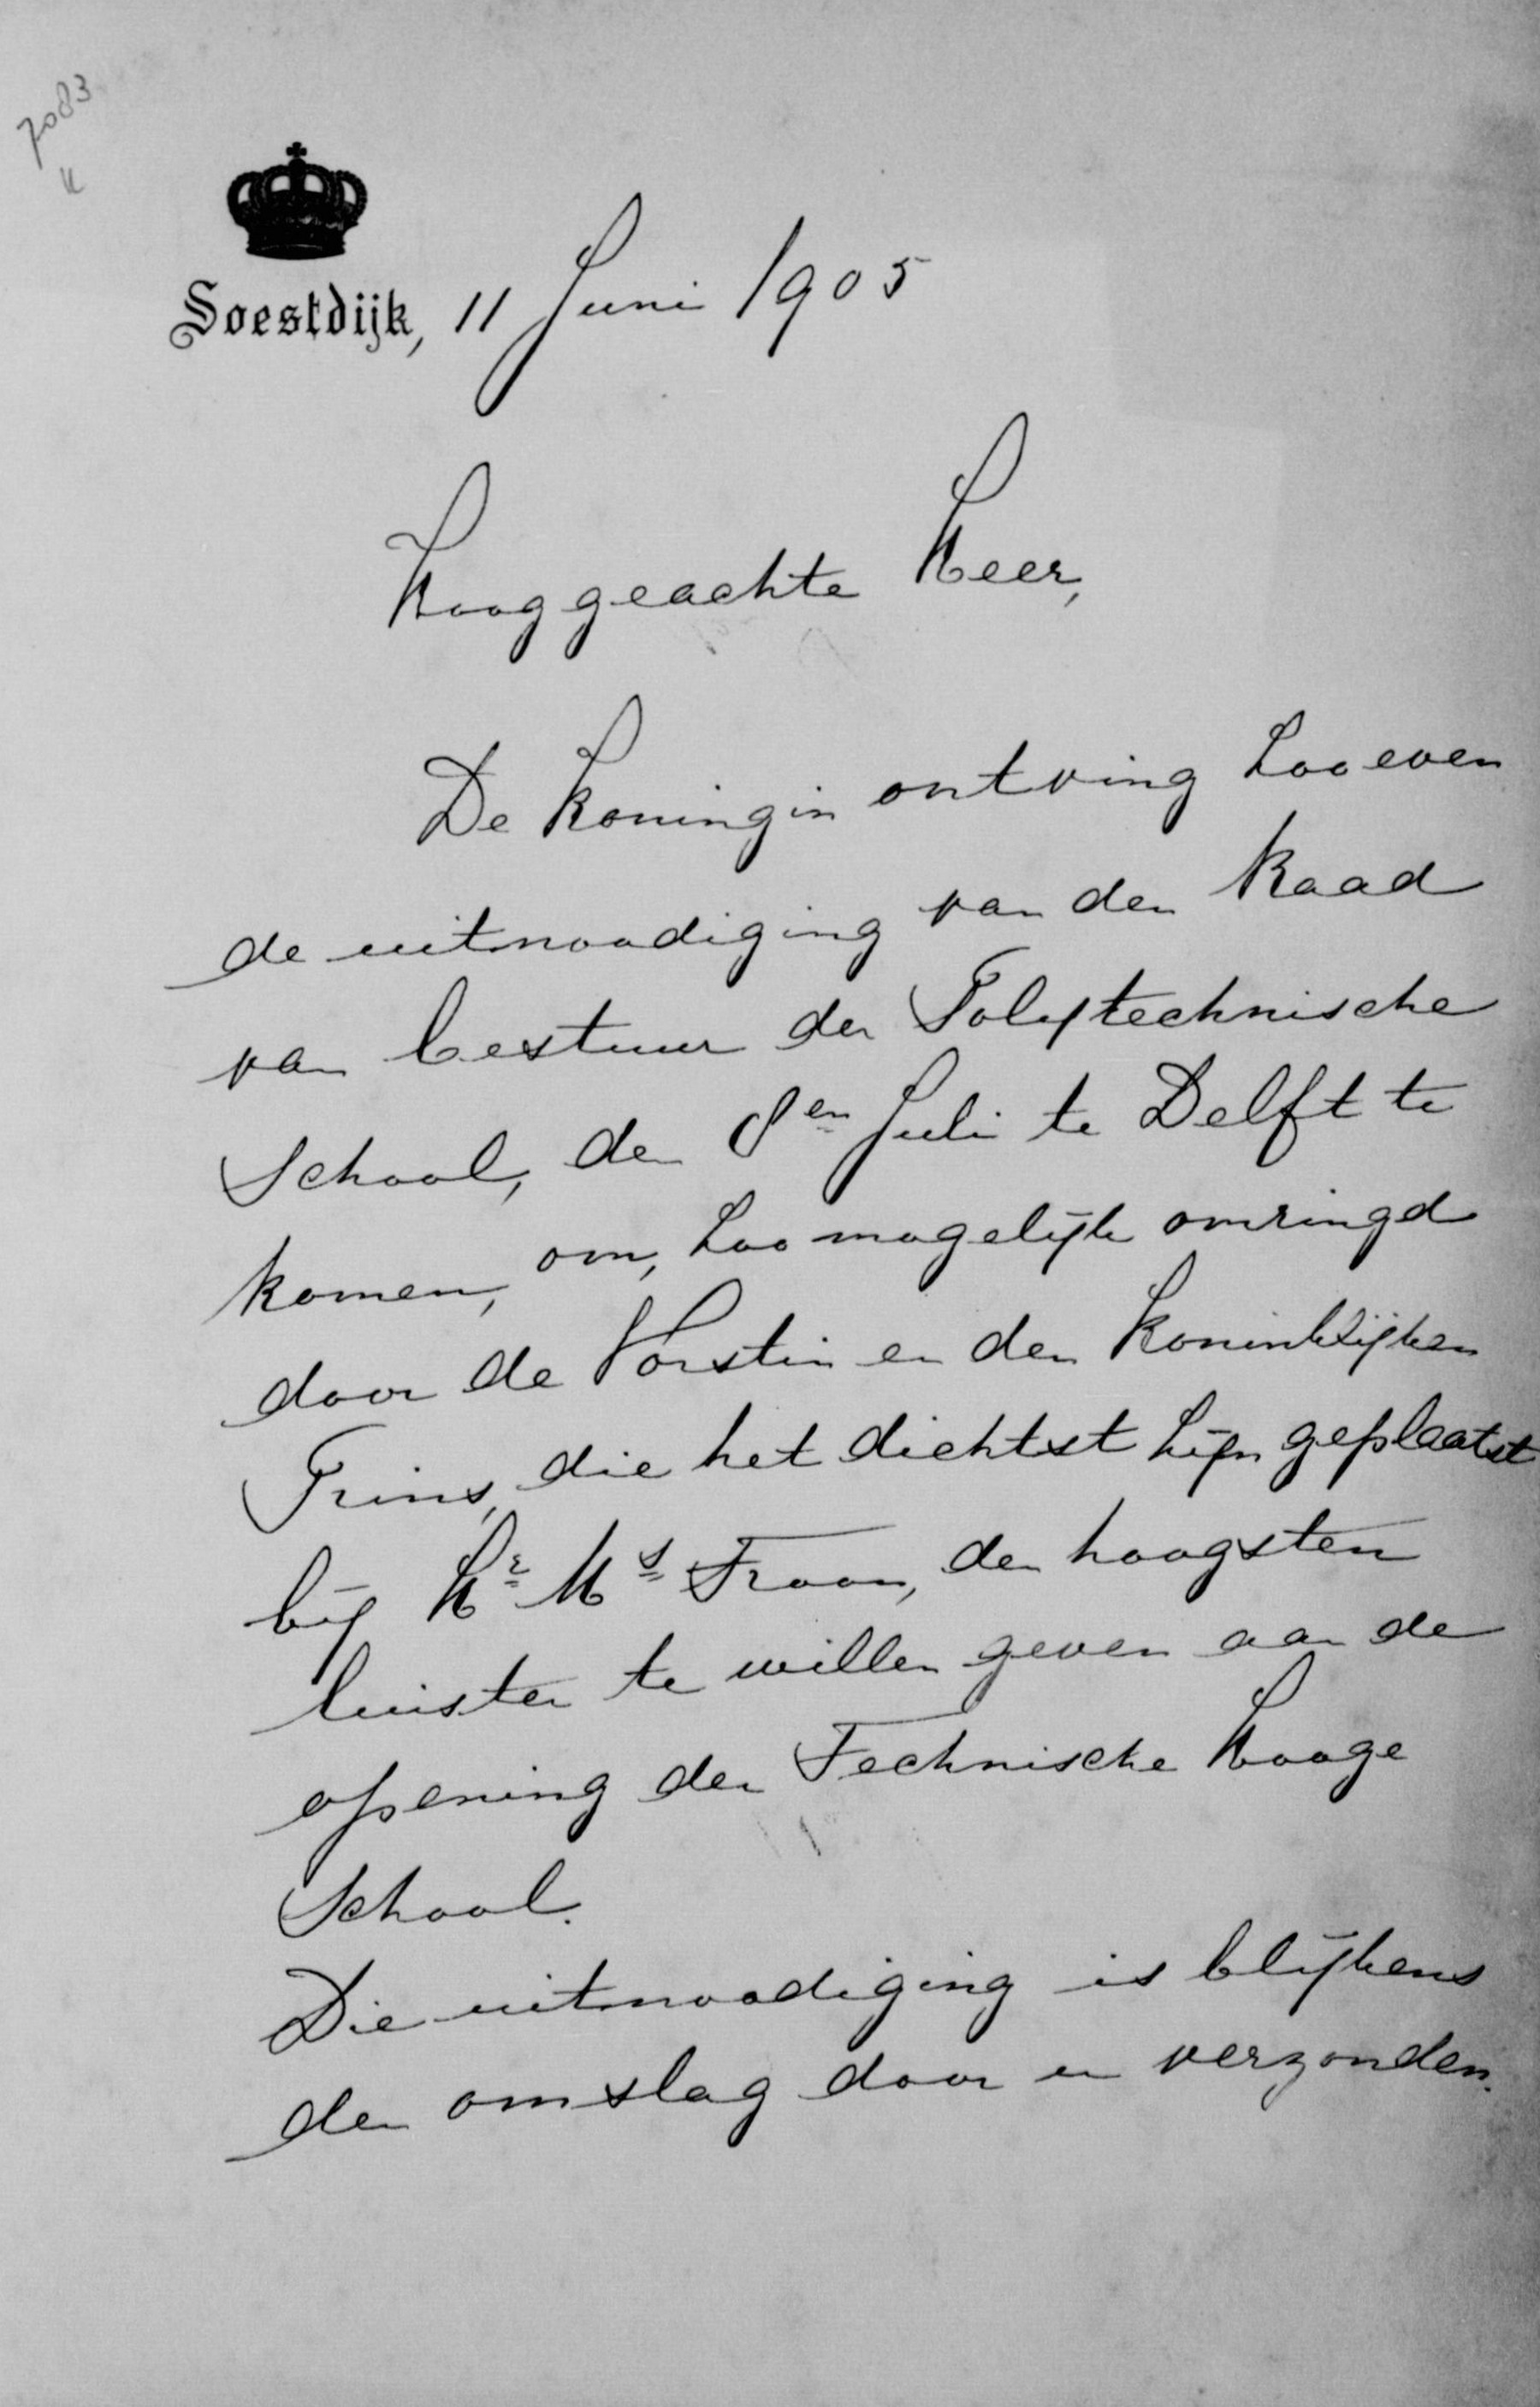 7083
Soestdijk, 11 Juni 1905
Hooggeachte Heer,
De Koningin ontving zooeven
de uitnoodiging van den Raad
van Bestuur der Polytechnische
School, den 8en Juli te Delft te
komen, om, zoo mogelijk omringd
door de Vorstin en den Koninklijken
Prins, die het dichtst zijn geplaatst
bij Hr Ms Troon, den hoogsten
luister te willen geven aan de
opening der Technische Hooge
School.
Die uitnoodiging is blijkens
den omslag door u verzonden.